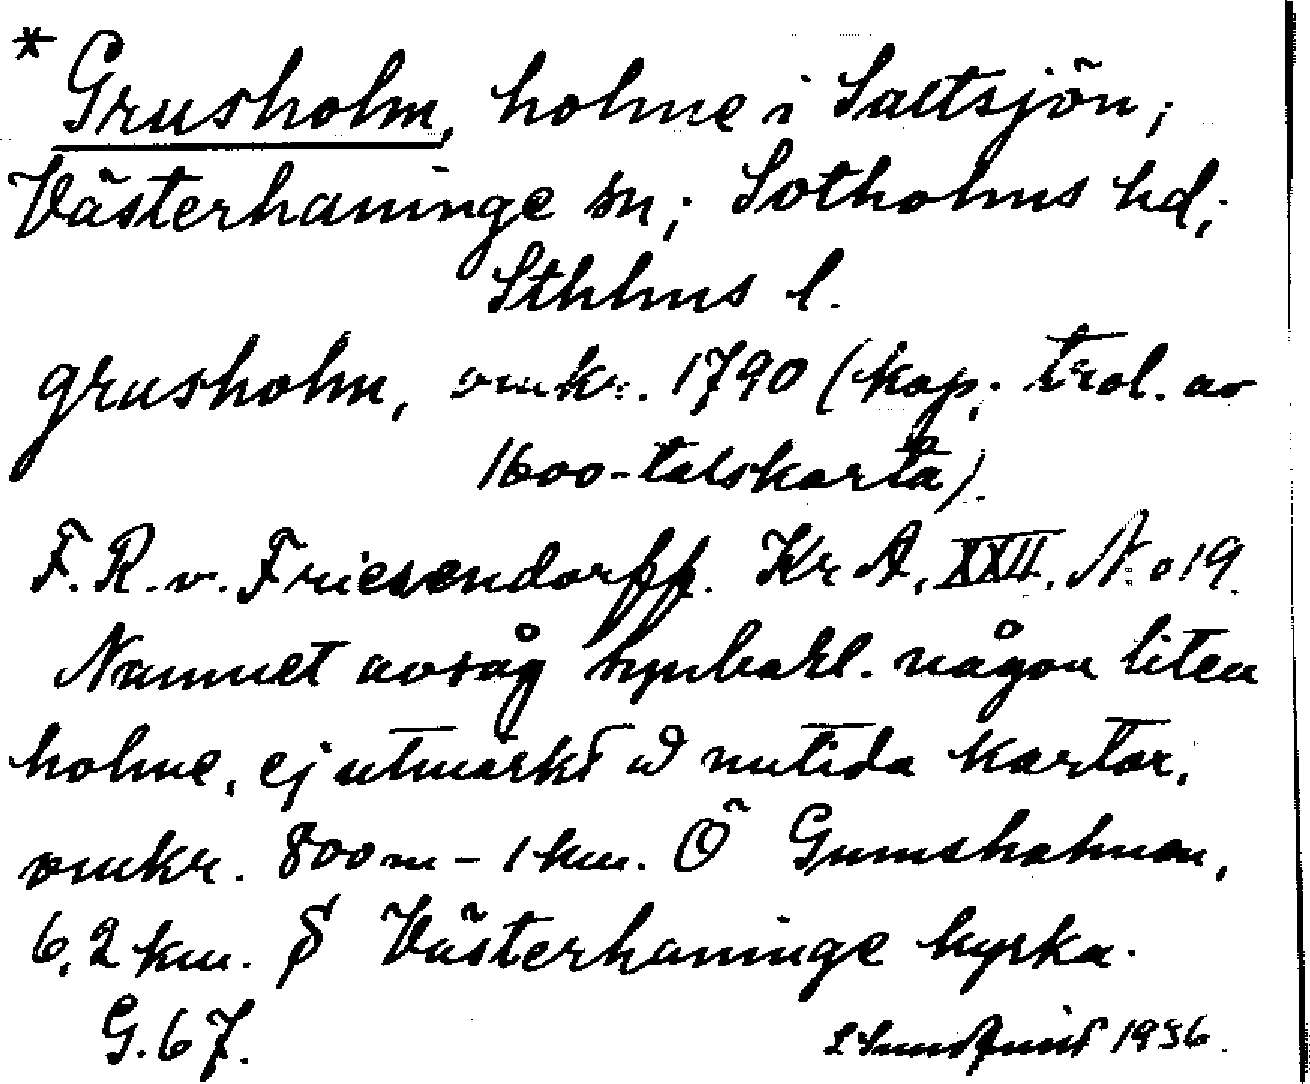 * Grusholm, holme i Saltsjön;
Västerhaninge sn; Sotholms hd;
Sthlms l.
grusholm, omkr. 1790 (kop. trol. av
1600-talskarta).
F. R. v. Friesendorff. Kr A, XXII, No 19.
Namnet avsåg synbarl. någon liten
holme, ej utmärkt å nutida kartor,
omkr. 800 m - 1 km. Ö Gumsholmen,
6,2 km. S Västerhaninge kyrka.
G. 67.
1936.